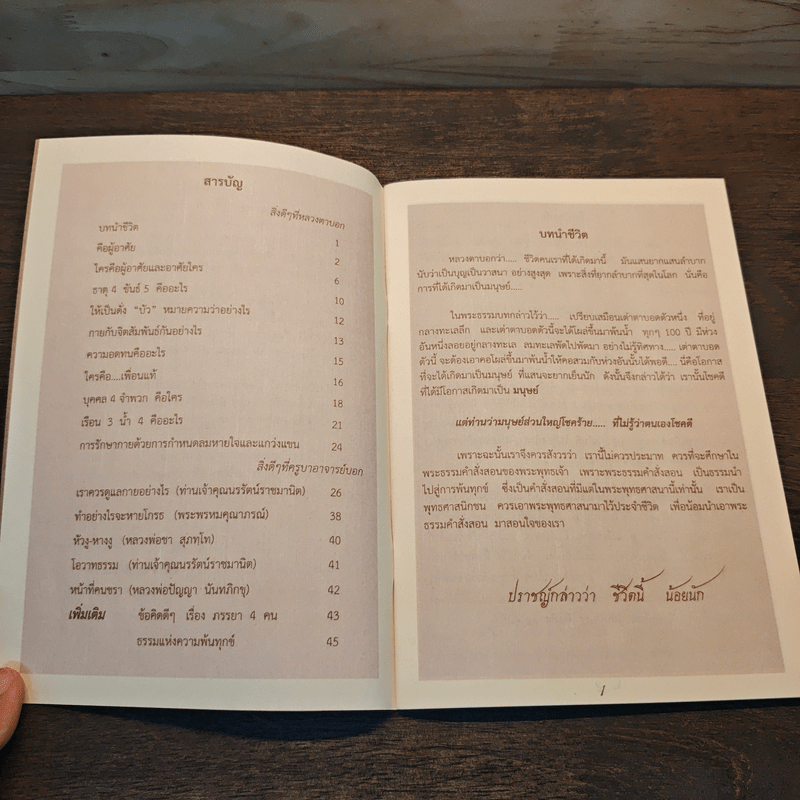 สารบัญ
สิ่งดีๆที่หลวงตาบอก
บทนำชีวิต 1
คือผู้อาศัย 2
ใครคือผู้อาศัยและอาศัยใคร 6
ธาตุ 4 ขันธ์ 5 คืออะไร 10
ให้เป็นดั่ง “บัว” หมายความว่าอย่างไร 12
กายกับจิตสัมพันธ์กันอย่างไร 13
ความอดทนคืออะไร 15
ใครคือ....เพื่อนแท้ 16
บุคคล 4 จำพวก คือใคร 18
เรือน 3 น้ำ 4 คืออะไร 21
การรักษากายด้วยการกำหนดลมหายใจและแกว่งแขน 24
สิ่งดีๆที่ครูบาอาจารย์บอก
เราควรดูแลกายอย่างไร (ท่านเจ้าคุณนรรัตน์ราชมานิต) 26
ทำอย่างไรจะหายโกรธ (พระพรหมคุณาภรณ์) 38
หัวงู-หางงู (หลวงพ่อชา สุภทฺโท) 40
โอวาทธรรม (ท่านเจ้าคุณนรรัตน์ราชมานิต) 41
หน้าที่คนชรา (หลวงพ่อปัญญา นันทภิกขุ) 42
เพิ่มเติม ข้อคิดดีๆ เรื่อง ภรรยา 4 คน 43
ธรรมแห่งความพ้นทุกข์ 45
บทนำชีวิต
หลวงตาบอกว่า..... ชีวิตคนเราที่ได้เกิดมานี้ มันแสนยากแสนลำบาก
นับว่าเป็นบุญเป็นวาสนา อย่างสูงสุด เพราะสิ่งที่ยากลำบากที่สุดในโลก นั่นคือ
การที่ได้เกิดมาเป็นมนุษย์.....
ในพระธรรมบทกล่าวไว้ว่า..... เปรียบเสมือนเต่าตาบอดตัวหนึ่ง ที่อยู่
กลางทะเลลึก และเต่าตาบอดตัวนี้จะได้โผล่ขึ้นมาพ้นน้ำ ทุกๆ 100 ปี มีห่วง
อันหนึ่งลอยอยู่กลางทะเล ลมทะเลพัดไปพัดมา อย่างไม่รู้ทิศทาง..... เต่าตาบอด
ตัวนี้ จะต้องเอาคอโผล่ขึ้นมาพ้นน้ำให้คอสวมกับห่วงอันนั้นได้พอดี..... นี่คือโอกาส
ที่จะได้เกิดมาเป็นมนุษย์ ที่แสนจะยากเย็นนัก ดังนั้นจึงกล่าวได้ว่า เรานั้นโชคดี
ที่ได้มีโอกาสเกิดมาเป็น มนุษย์
แต่ท่านว่ามนุษย์ส่วนใหญ่โชคร้าย..... ที่ไม่รู้ว่าตนเองโชคดี
เพราะฉะนั้นเราจึงควรสังวรว่า เรานี้ไม่ควรประมาท ควรที่จะศึกษาใน
พระธรรมคำสั่งสอนของพระพุทธเจ้า เพราะพระธรรมคำสั่งสอน เป็นธรรมนำ
ไปสู่การพ้นทุกข์ ซึ่งเป็นคำสั่งสอนที่มีแต่ในพระพุทธศาสนานี้เท่านั้น เราเป็น
พุทธศาสนิกชน ควรเอาพระพุทธศาสนามาไว้ประจำชีวิต เพื่อน้อมนำเอาพระ
ธรรมคำสั่งสอน มาสอนใจของเรา
ปราชญ์กล่าวว่า ชีวิตนี้ น้อยนัก
1